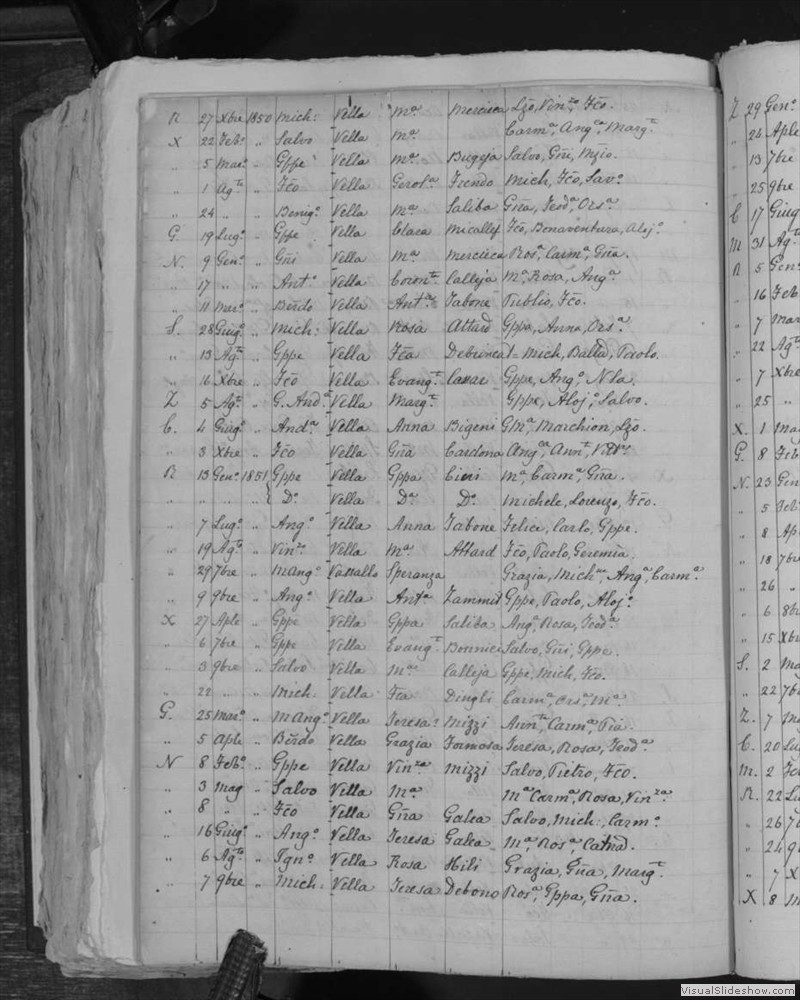 R 27 Xbre 1850 Mich: Vella Mª Mercieca Lzō, Vinzº, Fcō.
X 22 Febº „ Salvo Vella Mª Carmª, Angª, Margᵗ
„ 5 Marº „ Gppe Vella Mª Bugeja Salvo, Gñi,
„ 1 Agᵗº „ Fcō Vella Gerolª Mich, Fcō, Savº
„ 24 „ „ Benigº Vella Mª Saliba Gña, Teodª, Orsª
G. 19 Lugº „ Gppe Vella Clara Micallef Fcō, Bonaventura, Alojº
N. 9 Genº „ Gñi Vella Mª Mercieca Rosª, Carmª, Gña.
„ 17 „ „ Antº Vella Coronᵗ Calleja Mª, Rosa, Angª
„ 11 Marº „ Bẽrdo Vella Antª Tabone Publio, Fcō.
S. 28 Giugº „ Mich: Vella Rosa Attard Gppa, Anna, Orsª
„ 13 Agᵗº „ Gppe Vella Fcã Debrincat Mich, Paolo.
„ 16 Xbre „ Fcō Vella Evangᵗ Cassar Gppe, Angº, Nla.
Z 5 Agᵗº „ G. Andª Vella Margᵗ Gppe, Alojº, Salvo.
C. 4 Giugº „ Andª Vella Anna Bigeni Gmª, Marchion, Lzō.
„ 3 Xbre „ Fcō Vella Gña Cardona Angª, Annᵗ,
R 13 Genº 1851 Gppe Vella Gppa Cini Mª, Carmª, Gña.
„ „ „ „ Dº Vella Dª Dº Michele, Lorenzo, Fcō.
„ 7 Lugº „ Angº Vella Anna Tabone Felice, Carlo, Gppe.
„ 19 Agᵗº „ Vinzº Vella Mª Attard Fcō, Paolo, Geremia.
„ 29 7bre „ Mangº Vassallo Speranza Grazia, Michª, Angª, Carmª
„ 9 9bre „ Angº Vella Antª Zammit Gppe, Paolo, Alojº
X 27 Aple „ Gppe Vella Gppa Saliba Angª, Rosa, Teodª
„ 6 7bre „ Gppe Vella Evangᵗ Bonnici Salvo, Gñi, Gppe.
„ 3 9bre „ Salvo Vella Mª Calleja Gppe, Mich, Fcō.
„ 22 „ „ Mich: Vella Fca Dingli Carmª, Orsª, Mª
G. 25 Marº „ Mangº Vella Teresa Mizzi Annᵗª, Carmª, Pia.
„ 5 Aple „ Bẽrdo Vella Grazia Formosa Teresa, Rosa, Teodª
N 8 Febº „ Gppe Vella Vinzª Mizzi Salvo, Pietro, Fcō.
„ 3 Mag „ Salvo Vella Mª Mª Carmª, Rosa, Vinzª
„ 8 „ „ Fcō Vella Gña Galea Salvo, Mich:, Carmº
„ 16 Giugº „ Angº Vella Teresa Galea Mª, Rosª,
„ 6 Agᵗº „ Ignº Vella Rosa Hili Grazia, Gña, Margᵗ
„ 7 9bre „ Mich: Vella Teresa Debono Rosª, Gppa, Gña.
Z 29 Genº
„ 24 Aple
„ 13 7bre
„ 25 9bre
C 17 Giug
M 31 Agᵗ
R 5 Genº
„ 16 Feb
„ 7 Mar
„ 22 Agᵗ
„ 7 Xbre
„ 25 „
X. 1 Ma
G. 8 Feb
N. 23 Gen
„ 5 Feb
„ 8 Ap
„ 18 7bre
„ 26 „
„ 6 8br
„ 15 Xbr
S. 2 Ma
„ 22 7b
Z. 7 Ma
C. 20 Lu
M. 2 Fe
R. 22 Lu
„ 26 7
„ 24 9
„ 7 X
X 8 M
VisualSlideshow.com